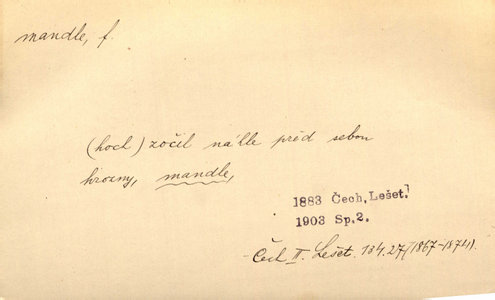 mandle, f.
(hoch) zočil náhle před sebou
hrozny, mandle,
1883 Čech, Lešet.
1903 Sp. 2.
Čech II. Lešet. 134.27 (1867-1874).